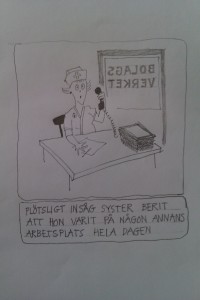 BOLAGS
VERKET
PLÖTSLIGT INSÅG SYSTER BERIT....
ATT HON VARIT PÅ NÅGON ANNANS
ARBETSPLATS HELA DAGEN